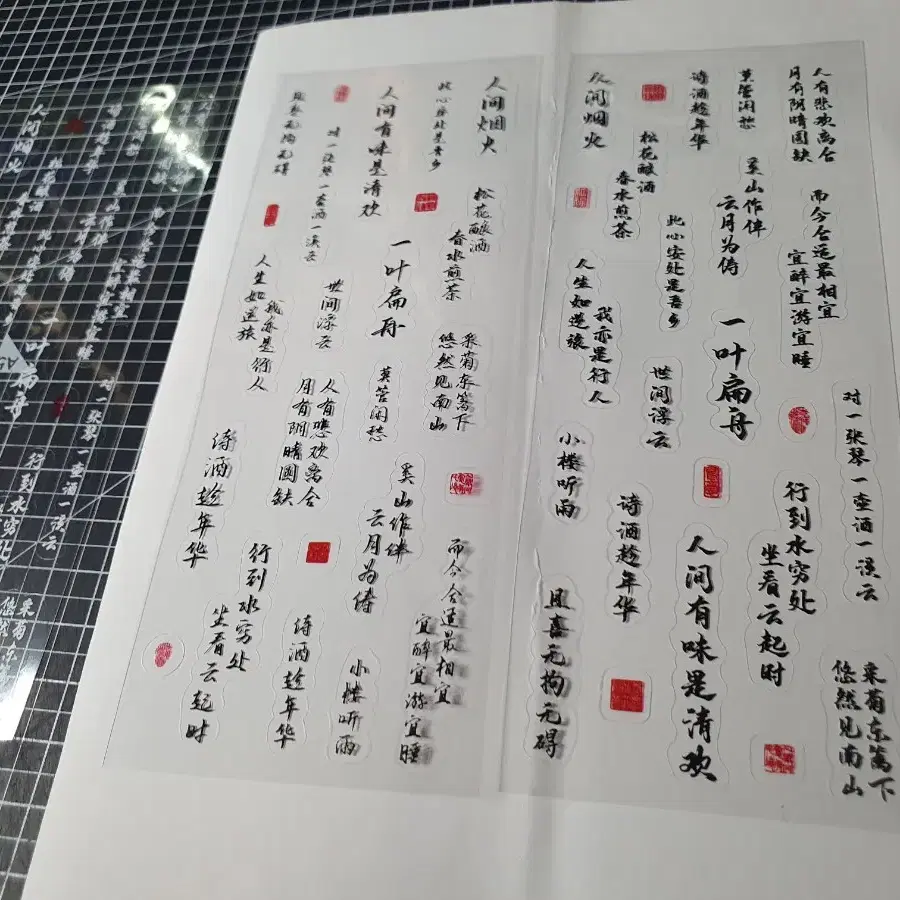 人间烟火
此心安处是吾乡
人间有味是清欢
且喜无拘无碍
松花酿酒
春水煎茶
一叶扁舟
对一张琴一壶酒一溪云
世间浮云
人生如逆旅
我亦是行人
采菊东篱下
悠然见南山
莫管闲愁
人有悲欢离合
月有阴晴圆缺
诗酒趁年华
奚山作伴
云月为俦
而今合适最相宜
宜醉宜游宜睡
行到水穷处
坐看云起时
诗酒趁年华
小楼听雨
人有悲欢离合
月有阴晴圆缺
莫管闲愁
诗酒趁年华
人间烟火
松花酿酒
春水煎茶
奚山作伴
云月为俦
而今合适最相宜
宜醉宜游宜睡
此心安处是吾乡
人生如逆旅
我亦是行人
一叶扁舟
世间浮云
对一张琴一壶酒一溪云
小楼听雨
诗酒趁年华
行到水穷处
坐看云起时
人间有味是清欢
且喜无拘无碍
采菊东篱下
悠然见南山
人间烟火
一叶扁舟
对一张琴一壶酒一溪云
行到水穷处